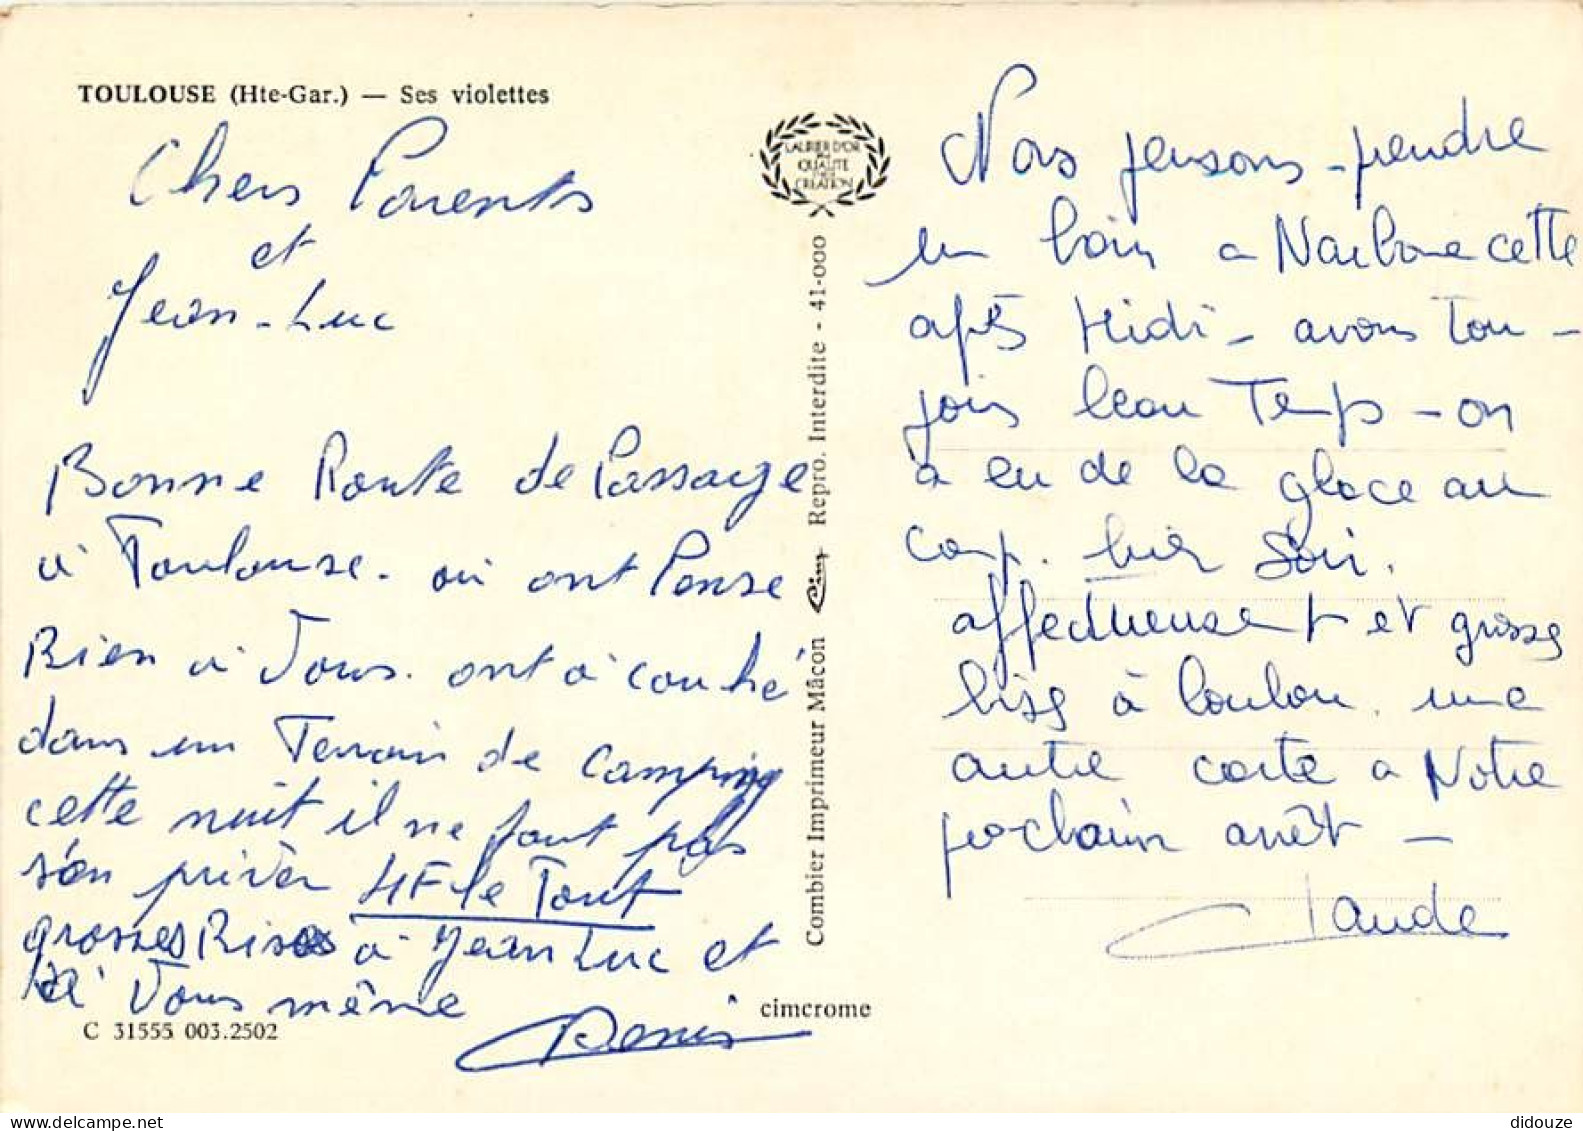 TOULOUSE (Hte-Gar.) — Ses violettes
Chers Parents
et
Jean-Luc
Bonne Route de Passage
à Toulouse. où ont Pense
Bien à Vous. ont à couché
dans un Terrain de camping
cette nuit il ne faut pas
s'en privèr 4F le Tout
grosses Bises à Jean Luc et
à Vous même
Denis
C 31555 003.2502
cimcrome
LAURIER D'OR
QUALITÉ
CRÉATION
Combier Imprimeur Mâcon Cim Repro. Interdite - 41-000
Nous pensons - prendre
un bain a Narbonne cette
après Midi - avons tou -
jours beau Temps - on
a eu de la glace au
camp. hier Soir.
affectueusement et grosse
bise à loulou. une
autre carte a Notre
prochain arrêt -
Claude
didouze